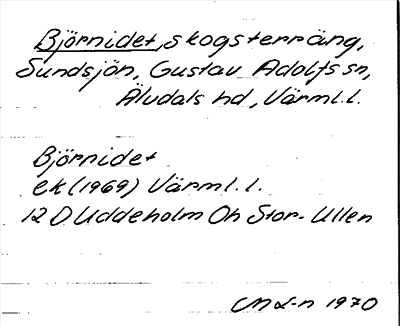 Björnidet, skogsterräng,
Sundsjön, Gustav Adolfs sn,
Älvdals hd, Värml. l.
Björnidet
ek (1969) Värml. l.
12 D Uddeholm Öh Stor-Ullen
CM L-n 1970